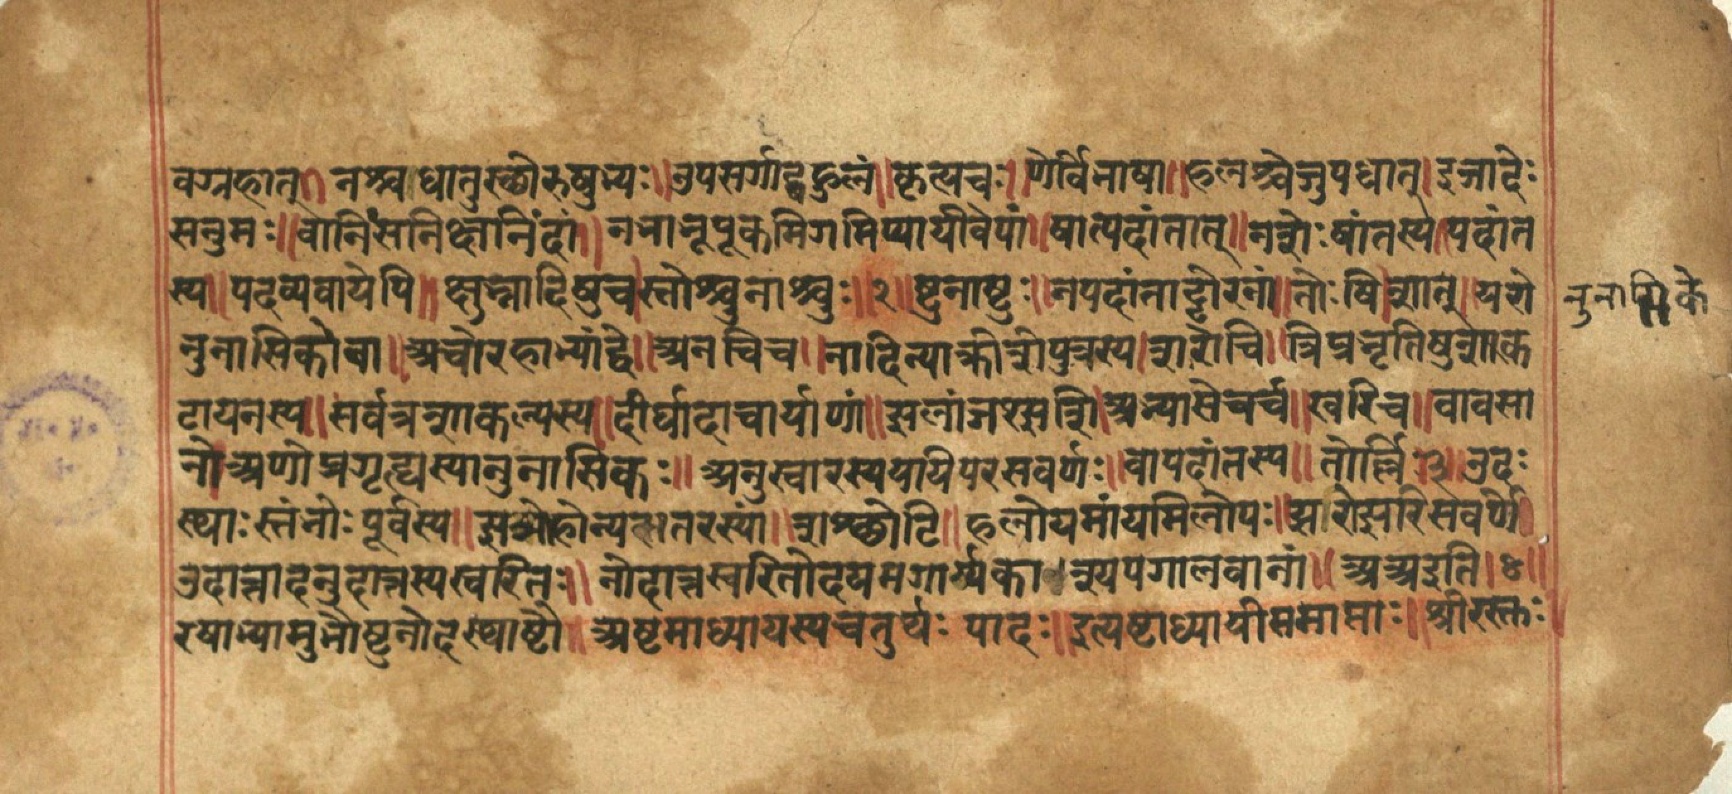 वग्रहात् ॥ नश्च धातुस्थोरुषुभ्यः ॥ उपसर्गाद्बहुलं ॥ कृत्यचः ॥ णेर्विभाषा ॥ हलश्चेजुपधात् । इजादेः
सनुमः ॥ वानिंसनिक्षनिंदां ॥ नभाभूपूकमिगमिप्यायीवेपां ॥ षात्पदांतात् ॥ नशेः षांतस्य ॥ पदांत
स्य ॥ पदव्यवायेपि ॥ क्षुभ्नादिषुच स्तोश्चुनाश्चुः ॥ २ ॥ ष्टुनाष्टुः ॥ नपदांताट्टोरनां ॥ तोः षि । शात् ॥ यरो
नुनासिके
नुनासिकोवा ॥ अचोरहाभ्यांद्वे ॥ अनचिच ॥ नादिन्याक्रोशेपुत्रस्य । शरोचि ॥ त्रिप्रभृतिषुशाक
टायनस्य ॥ सर्वत्रशाकल्यस्य ॥ दीर्घादाचार्याणां ॥ झलांजश्झशि ॥ अभ्यासेचर्च ॥ खरिच ॥ वावसा
ने अणोप्रगृह्यस्यानुनासिकः ॥ अनुस्वारस्यययिपरसवर्णः ॥ वापदांतस्य ॥ तोर्लि ३ ॥ उदः
स्थाः स्तंभोः पूर्वस्य ॥ झयोहोन्यतरस्यां ॥ शश्छोटि ॥ हलोयमांयमिलोपः ॥ झरोझरिसवर्णे ॥
उदात्तादनुदात्तस्यस्वरितः ॥ नोदात्तस्वरितोदयमगार्ग्यका श्यपगालवानां ॥ अअइति । ४ ॥
रषाभ्यामुभौष्टुनोदस्थाष्टौ ॥ अष्टमाध्यायस्यचतुर्थः पादः ॥ इत्यष्टाध्यायीसमाप्ताः ॥ श्रीरस्तः ॥